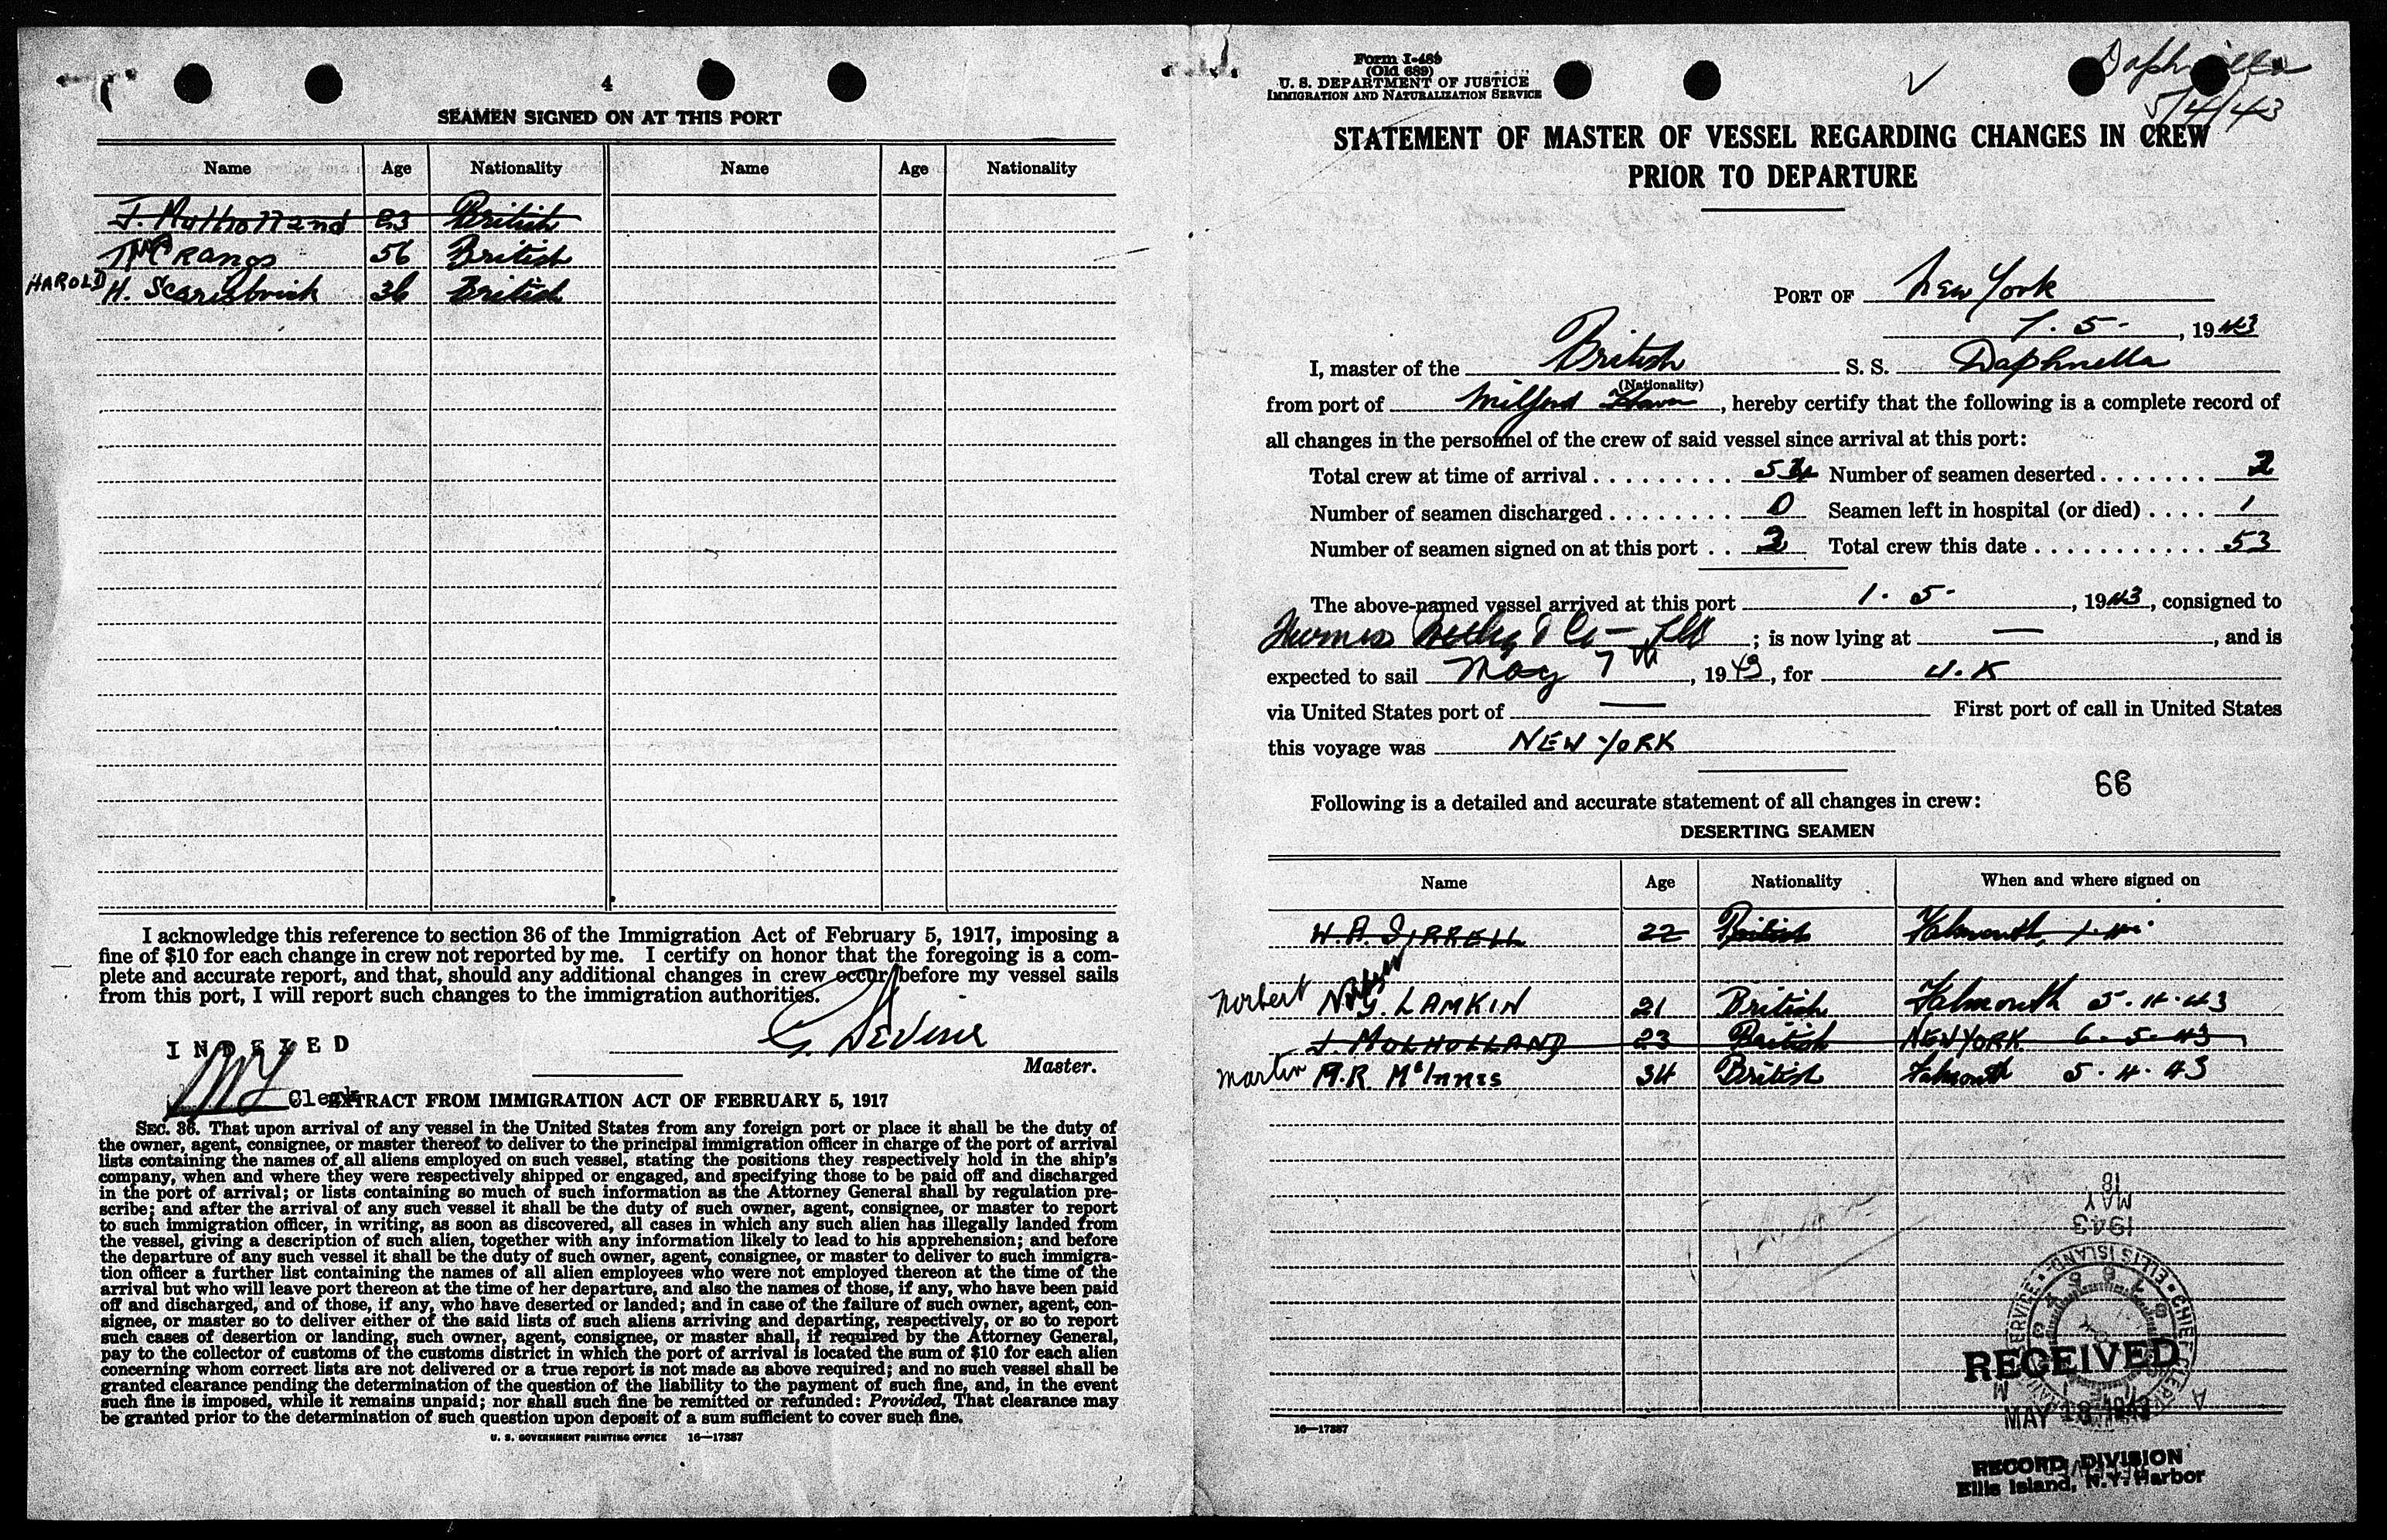 4
SEAMEN SIGNED ON AT THIS PORT
Name Age Nationality Name Age Nationality
J. Mulholland 23 British
56 British
HAROLD H. Scarisbrick 36 British
I acknowledge this reference to section 36 of the Immigration Act of February 5, 1917, imposing a
fine of $10 for each change in crew not reported by me. I certify on honor that the foregoing is a com-
plete and accurate report, and that, should any additional changes in crew occur before my vessel sails
from this port, I will report such changes to the immigration authorities.
G. Devine
Master.
INDEXED
Clerk
EXTRACT FROM IMMIGRATION ACT OF FEBRUARY 5, 1917
SEC. 36. That upon arrival of any vessel in the United States from any foreign port or place it shall be the duty of
the owner, agent, consignee, or master thereof to deliver to the principal immigration officer in charge of the port of arrival
lists containing the names of all aliens employed on such vessel, stating the positions they respectively hold in the ship's
company, when and where they were respectively shipped or engaged, and specifying those to be paid off and discharged
in the port of arrival; or lists containing so much of such information as the Attorney General shall by regulation pre-
scribe; and after the arrival of any such vessel it shall be the duty of such owner, agent, consignee, or master to report
to such immigration officer, in writing, as soon as discovered, all cases in which any such alien has illegally landed from
the vessel, giving a description of such alien, together with any information likely to lead to his apprehension; and before
the departure of any such vessel it shall be the duty of such owner, agent, consignee, or master to deliver to such immigra-
tion officer a further list containing the names of all alien employees who were not employed thereon at the time of the
arrival but who will leave port thereon at the time of her departure, and also the names of those, if any, who have been paid
off and discharged, and of those, if any, who have deserted or landed; and in case of the failure of such owner, agent, con-
signee, or master so to deliver either of the said lists of such aliens arriving and departing, respectively, or so to report
such cases of desertion or landing, such owner, agent, consignee, or master shall, if required by the Attorney General,
pay to the collector of customs of the customs district in which the port of arrival is located the sum of $10 for each alien
concerning whom correct lists are not delivered or a true report is not made as above required; and no such vessel shall be
granted clearance pending the determination of the question of the liability to the payment of such fine, and, in the event
such fine is imposed, while it remains unpaid; nor shall such fine be remitted or refunded: Provided, That clearance may
be granted prior to the determination of such question upon deposit of a sum sufficient to cover such fine.
U. S. GOVERNMENT PRINTING OFFICE 16—17387
Form I-489
(Old 689)
U. S. DEPARTMENT OF JUSTICE
IMMIGRATION AND NATURALIZATION SERVICE
Daphnella
5/4/43
STATEMENT OF MASTER OF VESSEL REGARDING CHANGES IN CREW
PRIOR TO DEPARTURE
PORT OF New York
7. 5-, 1943
I, master of the British S. S. Daphnella
(Nationality)
from port of Milford Haven, hereby certify that the following is a complete record of
all changes in the personnel of the crew of said vessel since arrival at this port:
Total crew at time of arrival Number of seamen deserted 2
Number of seamen discharged 0 Seamen left in hospital (or died) 1
Number of seamen signed on at this port Total crew this date 53
The above-named vessel arrived at this port 1. 5-, 1943, consigned to
& Co — Ltd; is now lying at —, and is
expected to sail May 7th, 1943, for U.K
via United States port of — First port of call in United States
this voyage was NEW YORK
66
Following is a detailed and accurate statement of all changes in crew:
DESERTING SEAMEN
Name Age Nationality When and where signed on
W.A. SIRRELL 22 British Falmouth,
Norbert N. G. LAMKIN 21 British Falmouth 5.4.43
J. MULHOLLAND 23 British NEW YORK 6-5-43
Martin M.R McInnes 34 British Falmouth 5.4.43
18
MAY
1943
ELLIS ISLAND
RECEIVED
MAY 18
16—17387
RECORD DIVISION
Ellis Island, N.Y. Harbor